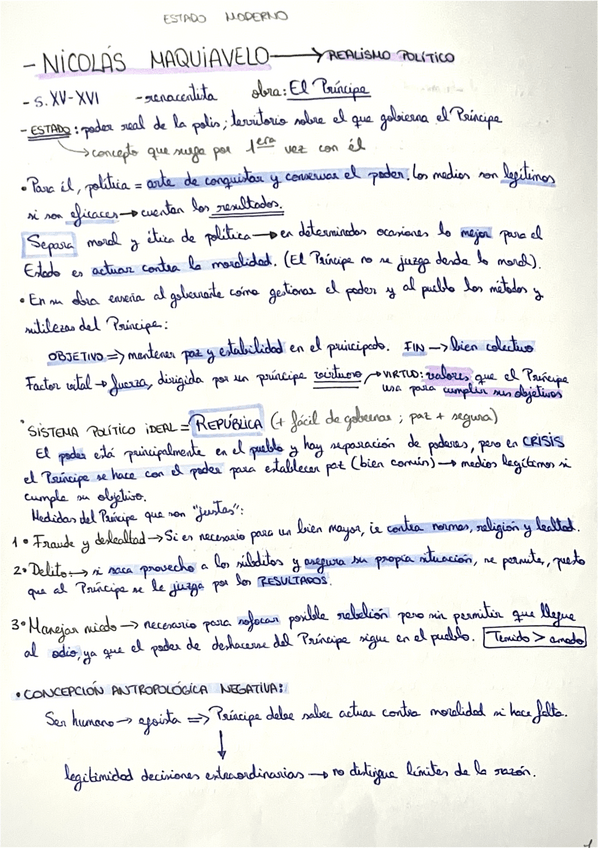 ESTADO MODERNO
- NICOLÁS MAQUIAVELO → REALISMO POLÍTICO
- S. XV-XVI - renacentista obra: El Príncipe
- ESTADO: poder real de la polis; territorio sobre el que gobierna el Príncipe
→ concepto que surge por 1era vez con él
• Para él, política = arte de conquistar y conservar el poder. Los medios son legítimos
si son eficaces → cuentan los resultados.
Separa moral y ética de política → en determinadas ocasiones lo mejor para el
Estado es actuar contra la moralidad. (El Príncipe no se juzga desde lo moral).
• En su obra enseña al gobernante cómo gestionar el poder y al pueblo los métodos y
sutilezas del Príncipe:
OBJETIVO => mantener paz y estabilidad en el principado. FIN → bien colectivo
Factor vital → fuerza, dirigida por un príncipe virtuoso → VIRTUD: valores que el Príncipe
usa para cumplir sus objetivos
• SISTEMA POLÍTICO IDEAL = REPÚBLICA (+ fácil de gobernar; paz + segura)
El poder está principalmente en el pueblo y hay separación de poderes, pero en CRISIS
el Príncipe se hace con el poder para establecer paz (bien común) → medios legítimos si
cumple su objetivo.
Medidas del Príncipe que son "justas":
1• Fraude y deslealtad → Si es necesario para un bien mayor, ir contra normas, religión y lealtad.
2• Delito → si saca provecho a los súbditos y asegura su propia situación, se permite, puesto
que al Príncipe se le juzga por los RESULTADOS.
3• Manejar miedo → necesario para sofocar posible rebelión pero sin permitir que llegue
al odio, ya que el poder de deshacerse del Príncipe sigue en el pueblo. Temido > amado
• CONCEPCIÓN ANTROPOLÓGICA NEGATIVA:
Ser humano → egoísta => Príncipe debe saber actuar contra moralidad si hace falta.
↓
legitimidad decisiones extraordinarias → no distingue límites de la razón.
1